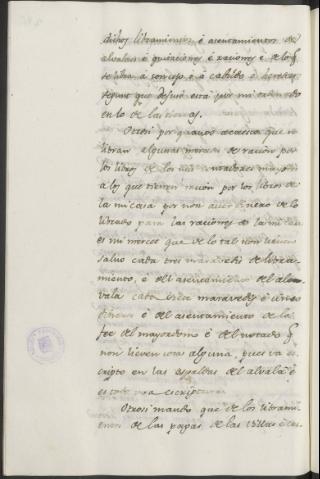 dichos libramientos é asentamientos de
alvalaes é quitaciones é raciones é de los q.
se libra á concejo é á cabildo é herederos
segund que desuso está por mi ordenado
en lo de las tierras.
Otrosi por quanto acaesce que se
libran algunas mercedes de racion por
los libros de los mis contadores mayores
á los que tienen racion por los libros de
la mi casa por non aver dinero de lo
librado para las raciones de la mi casa
es mi merced que de lo tal non lieven
salvo cada tres maravedis de libra-
miento, é del asentamiento del alva-
la cada cinco maravedis é cinco
dineros é del asentamiento de la
fee del mayordomo é del notario q.
non lieven cosa alguna, pues va es-
cripto en las espaldas del alvalá é
es toda una escriptura.
Otrosi mando que de los librami-
entos de las pagas de las villas é cas-